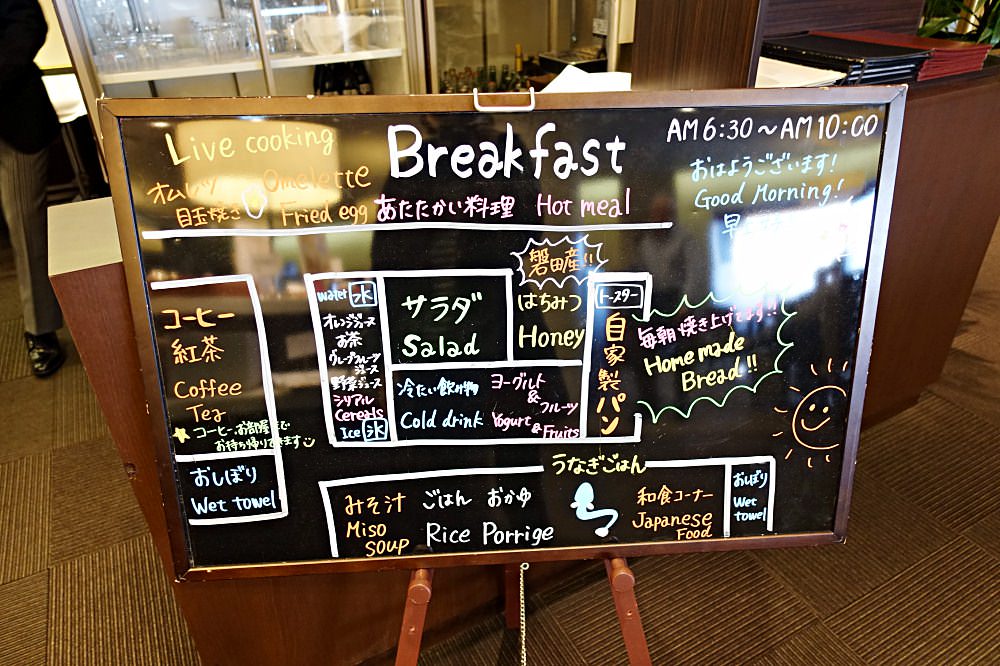 Live cooking
Breakfast
AM 6:30～AM 10:00
オムレツ Omelette
目玉焼き Fried egg
あたたかい料理 Hot meal
おはようございます!
Good Morning!
早
コーヒー
紅茶
Coffee
Tea
★コーヒーお部屋まで
お持ち帰りできます
おしぼり
Wet towel
water 水
オレンジジュース
お茶
グレープフルーツ
ジュース
野菜ジュース
シリアル
Cereals
Ice 氷
サラダ
Salad
磐田産!!
はちみつ
Honey
冷たい飲み物
Cold drink
ヨーグルト
&
フルーツ
Yogurt
& Fruits
トースター
自家製パン
毎朝焼き上げてます!!
Home made
Bread!!
うなぎごはん
みそ汁
Miso
soup
ごはん おかゆ
Rice Porrige
和食コーナー
Japanese
Food
おしぼり
Wet
towel